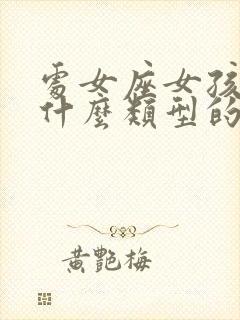 處女座女孩
什麼類型的
黃艷梅